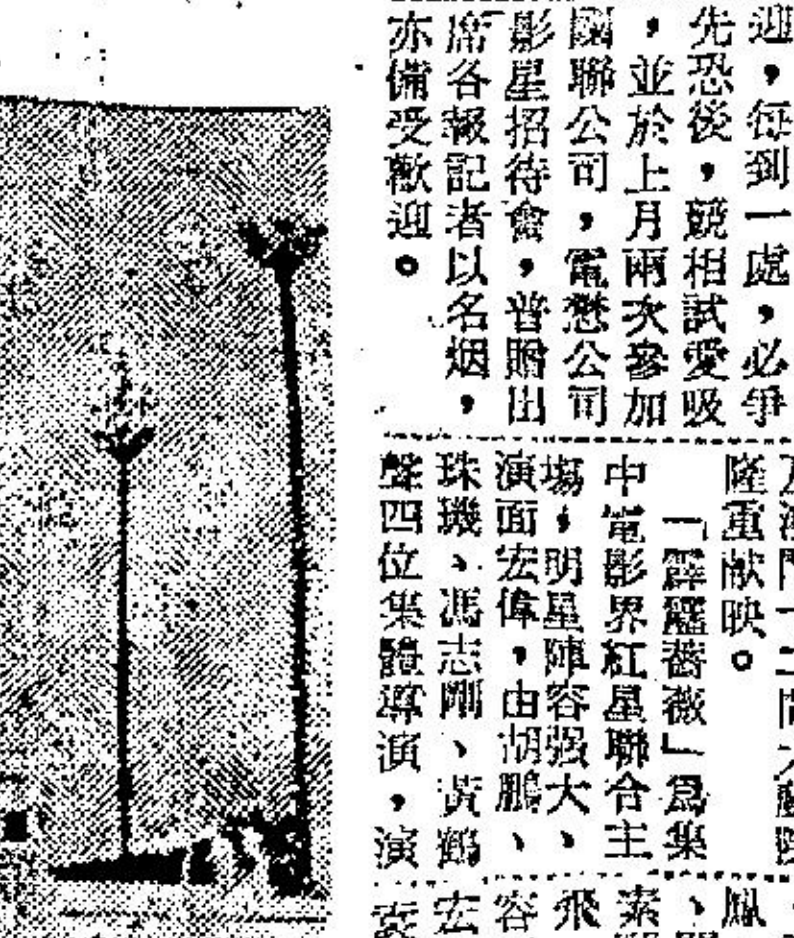 迎，每到一處，必爭
先恐後，競相試愛吸
，並於上月兩次參加
國聯公司，電懋公司
影星招待會，普贈出
席各報記者以名烟，
亦備受歡迎。
隆重献映。
「霹靂薔薇」爲集
中電影界紅星聯合主
塲，明星陣容强大、
演面宏偉，由胡鵬、
珠璣、馮志剛、黃鶴
聲四位集體導演，演
、鳳
素
飛
容
宏